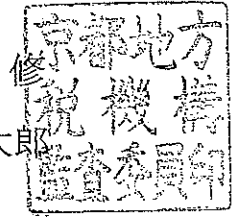 修
太郎
京都地方
税機構
監査委員印